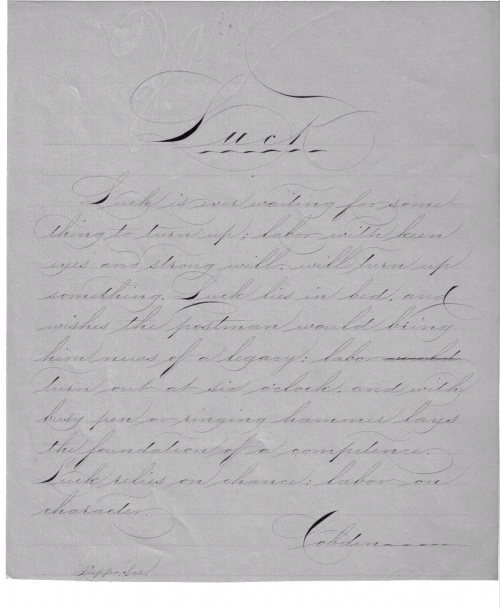 Luck
Luck is ever waiting for some-
thing to turn up; labor with keen
eyes and strong will, will turn up
something. Luck lies in bed, and
wishes the postman would bring
him news of a legacy; labor
turn out at six o'clock, and with
busy pen or ringing hammer lays
the foundation of a competence.
Luck relies on chance; labor on
character.
Cobden